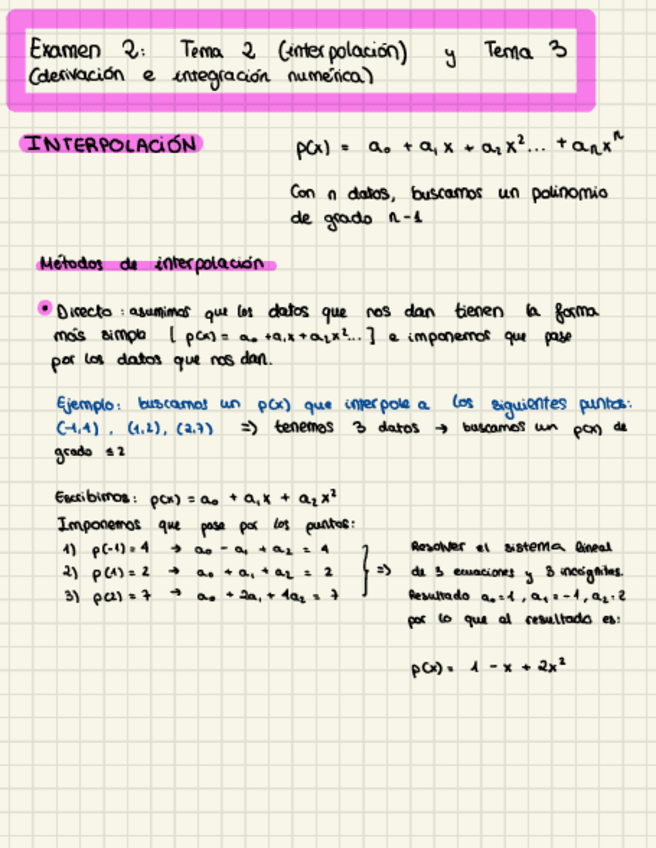 Examen 2: Tema 2 (interpolación) y Tema 3
(derivación e integración numérica)
INTERPOLACIÓN
p(x) = a₀ + a₁x + a₂x²... + aₙxⁿ
Con n datos, buscamos un polinomio
de grado n-1
Métodos de interpolación
• Directo: asumimos que los datos que nos dan tienen la forma
más simple [p(x) = a₀ + a₁x + a₂x²...] e imponemos que pase
por los datos que nos dan.
Ejemplo: buscamos un p(x) que interpole a los siguientes puntos:
(-1,4), (1,2), (2,7) => tenemos 3 datos → buscamos un p(x) de
grado ≤2
Escribimos: p(x) = a₀ + a₁x + a₂x²
Imponemos que pase por los puntos:
1) p(-1) = 4 → a₀ - a₁ + a₂ = 4
2) p(1) = 2 → a₀ + a₁ + a₂ = 2
3) p(2) = 7 → a₀ + 2a₁ + 4a₂ = 7
=>
Resolver el sistema lineal
de 3 ecuaciones y 3 incógnitas.
Resultado a₀=1, a₁=-1, a₂=2
por lo que el resultado es:
p(x) = 1 - x + 2x²